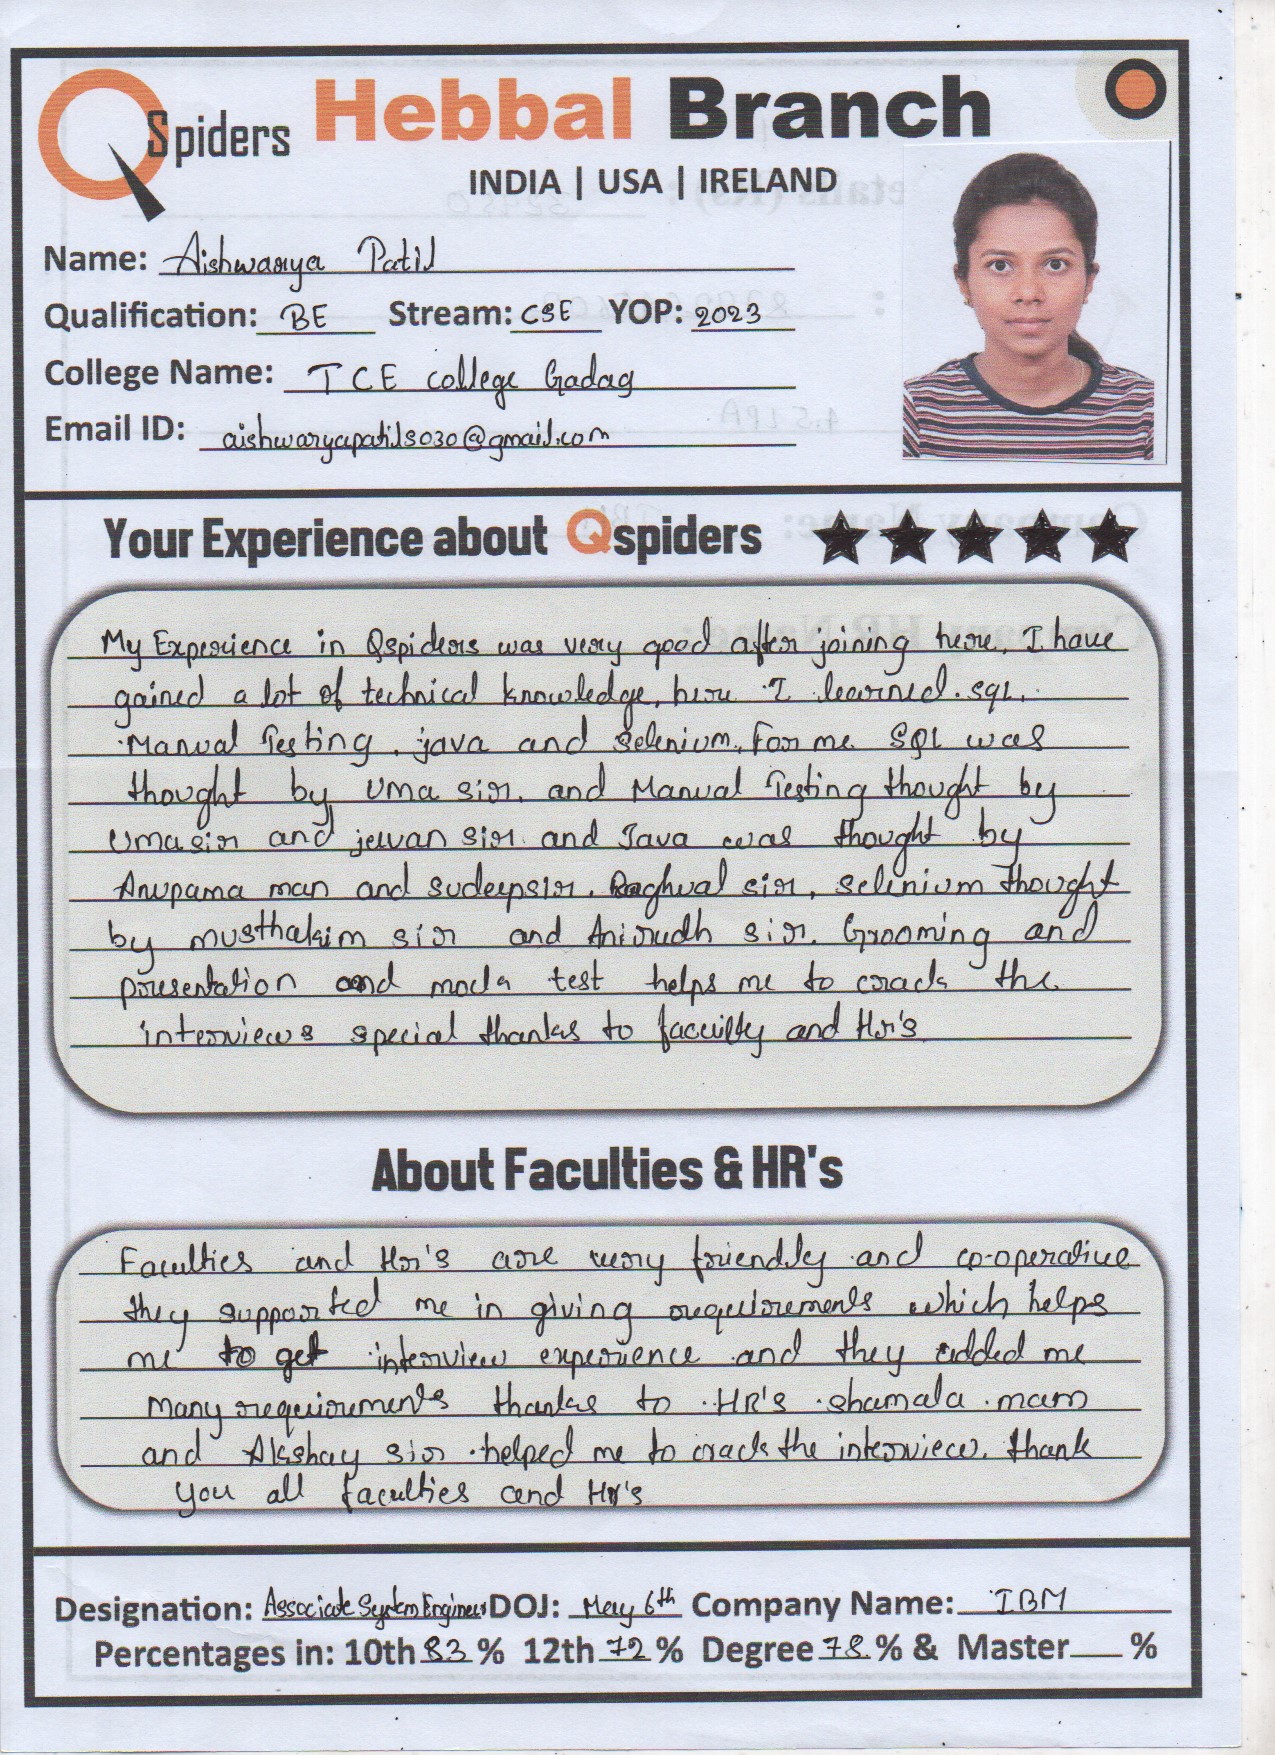 Qspiders Hebbal Branch
INDIA | USA | IRELAND
Name: Aishwarya Patil
Qualification: BE Stream: CSE YOP: 2023
College Name: TCE college Gadag
Email ID: aishwaryapatil8030@gmail.com
Your Experience about Qspiders
My Experience in Qspiders was very good after joining here, I have
gained a lot of technical knowledge, here I learned SQL,
Manual Testing, java and Selenium. For me SQL was
thought by Uma sir, and Manual Testing thought by
Uma sir and jeevan sir and Java was thought by
Anupama man and sudeepsir, Raghval sir, selenium thought
by musthakim sir and Anirudh sir. Grooming and
presentation and mock test helps me to crack the
interviews special thanks to faculty and Hr's
About Faculties & HR's
Faculties and Hr's are very friendly and co-operative
they supported me in giving requirements which helps
me to get interview experience and they added me
many requirements thanks to HR's shamala mam
and Akshay sir helped me to crack the interview. thank
you all faculties and Hr's
Designation: Associate System Engineer DOJ: May 6th Company Name: IBM
Percentages in: 10th 83 % 12th 72 % Degree 78 % & Master %